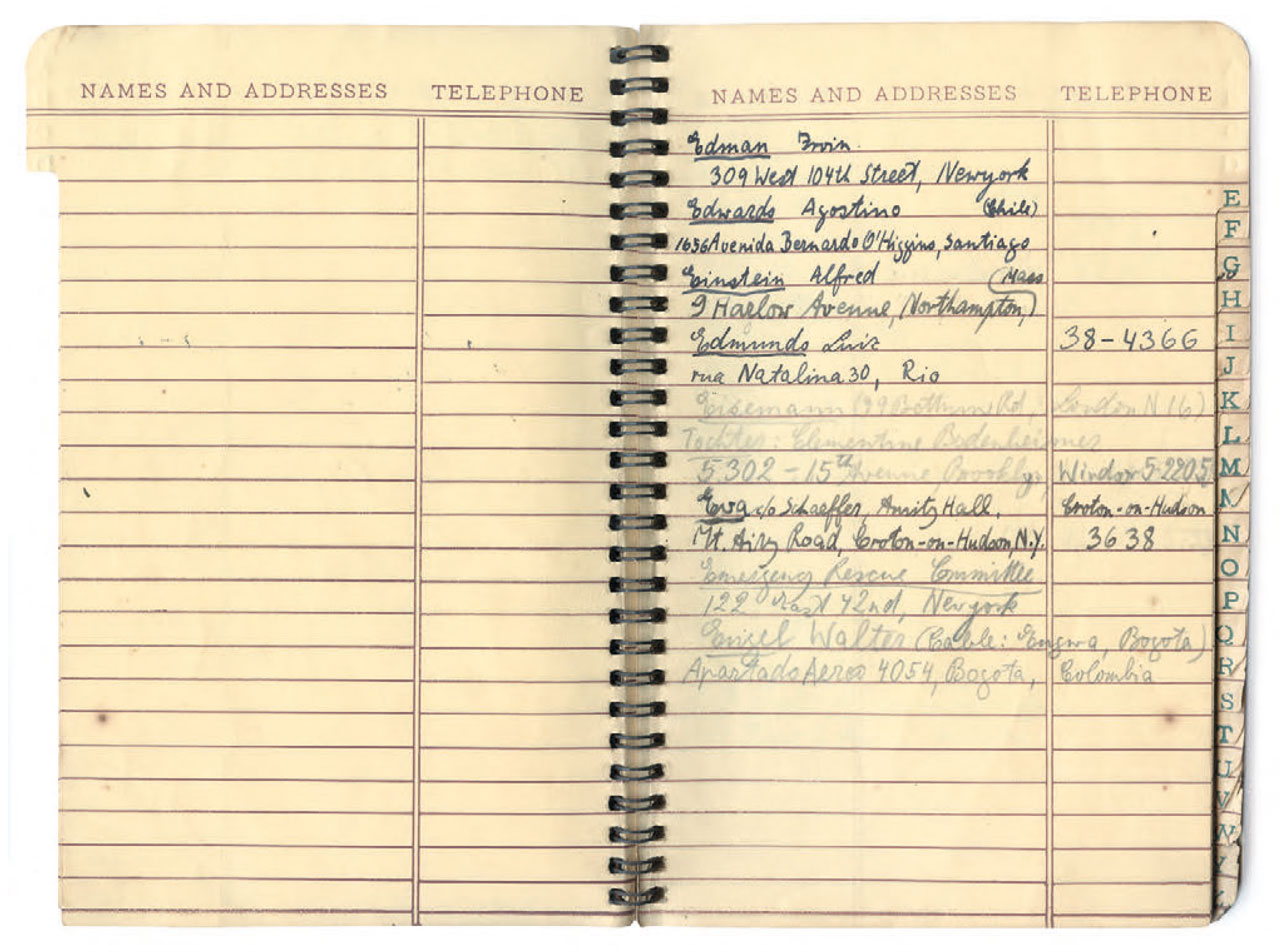 NAMES AND ADDRESSES TELEPHONE
NAMES AND ADDRESSES TELEPHONE
Edman Irvin
309 West 104th Street, Newyork
Edwards Agostino (Chile)
1656 Avenida Bernardo O'Higgins, Santiago
Einstein Alfred (Mass
9 Harlow Avenue, Northampton,)
Edmunds Luiz 38-4366
rua Natalina 30, Rio
Eisemann (99 Rd, London N 16)
Tochter: Clementine Bodenheimer
5302 - 15th Avenue, Brooklyn, Windsor 5-2205
Eva c/o Schaeffer, Amity Hall, Croton-on-Hudson
Mt. Airy Road, Croton-on-Hudson, N.Y. 3638
Emergency Rescue Committee
122 East 42nd, Newyork
Engel Walter (Cable: Engwa, Bogota)
Apartado Aereo 4054, Bogota, Colombia
E
F
G
H
I
J
K
L
M
N
O
P
Q
R
S
T
U
V
W